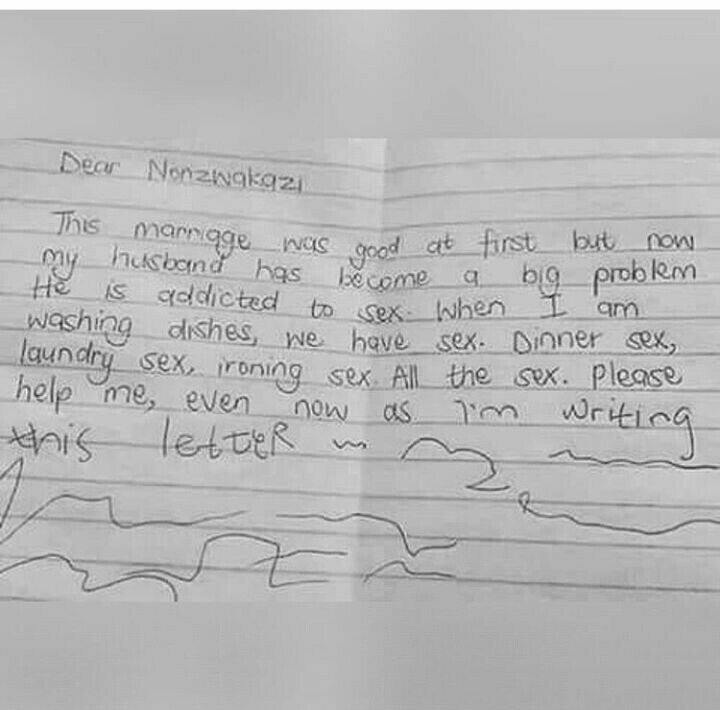 Dear Nonzwakazi
This marriage was good at first but now
my husband has become a big problem
He is addicted to sex. When I am
washing dishes, we have sex. Dinner sex,
laundry sex, ironing sex. All the sex. Please
help me, even now as I'm writing
this letteR